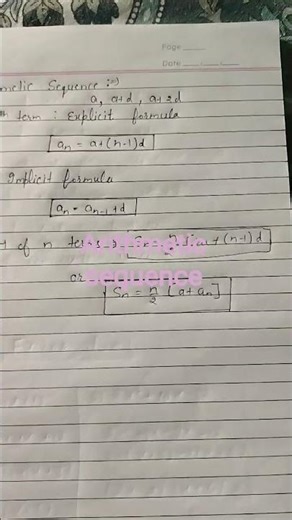 Page
Date
metic Sequence :-
a, a+d, a+2d
term : Explicit formula
a_n = a+(n-1)d
Implicit formula
a_n = a_{n-1}+d
of n terms
Arithmetic
sequence
+(n-1)d
or
S_n = n/2 [a+a_n]